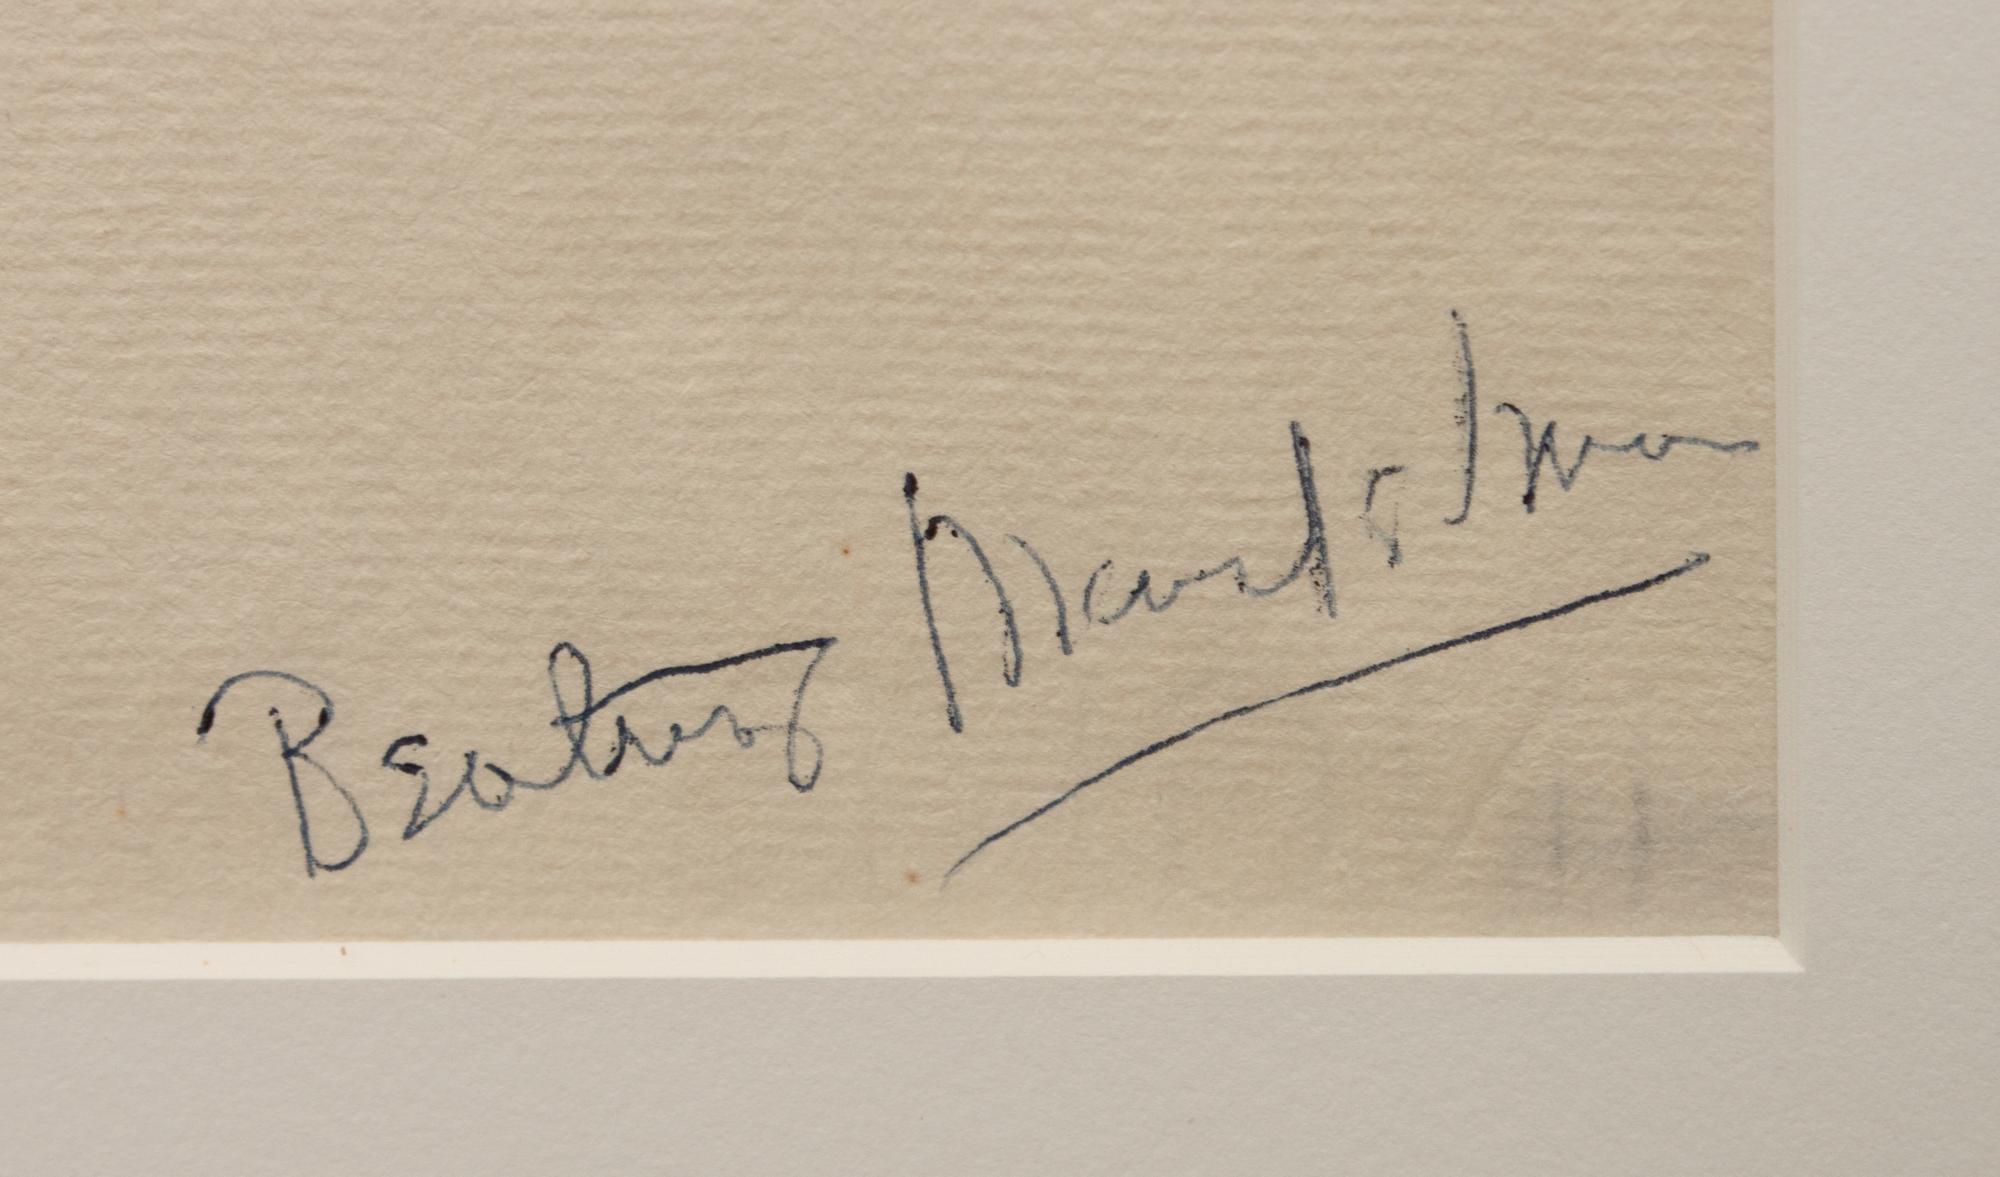 Beatriz Mandelman